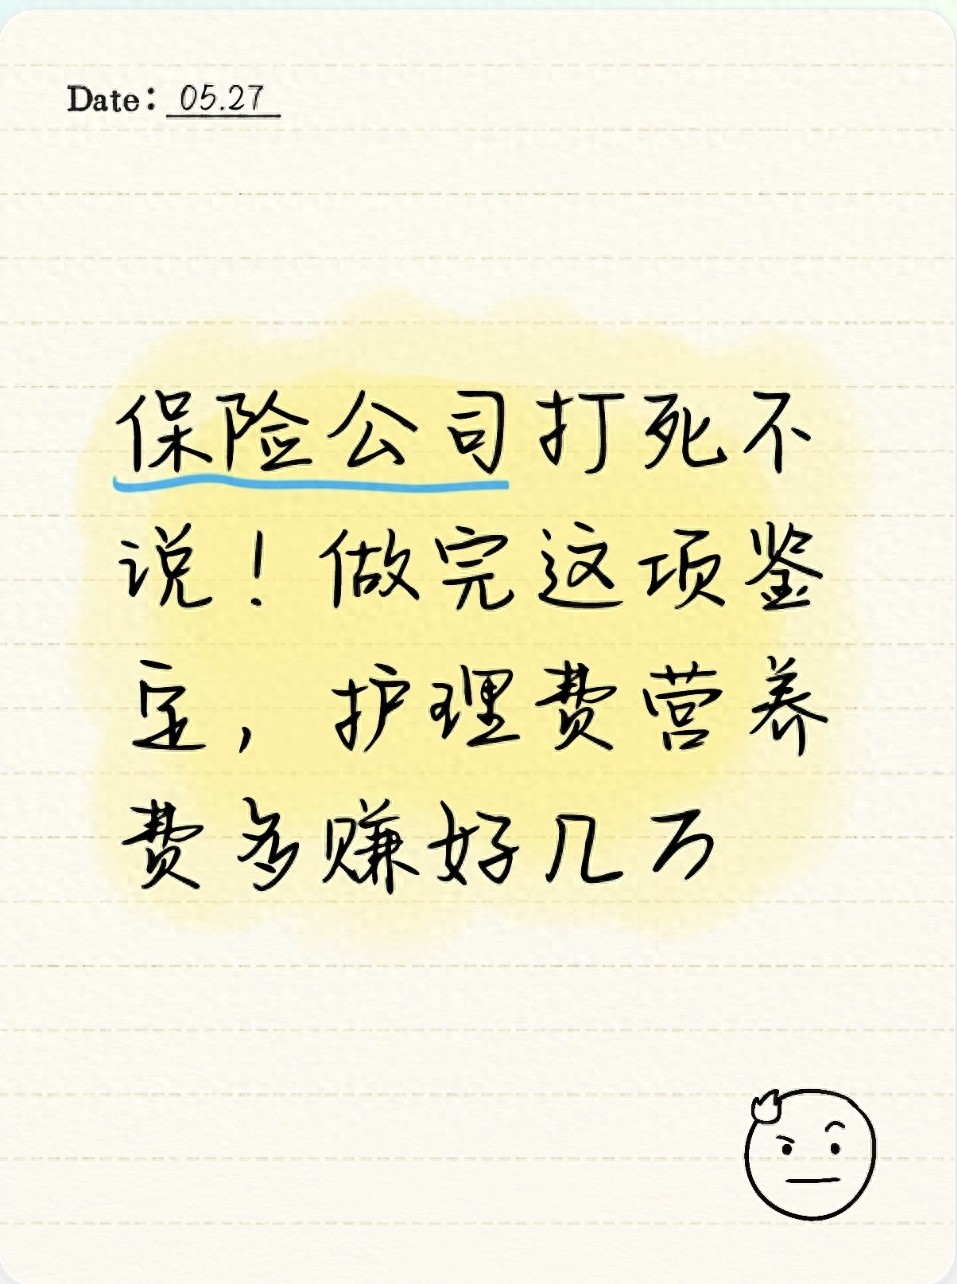 Date: 05.27
保险公司打死不
说！做完这项鉴
定，护理费营养
费多赚好几万